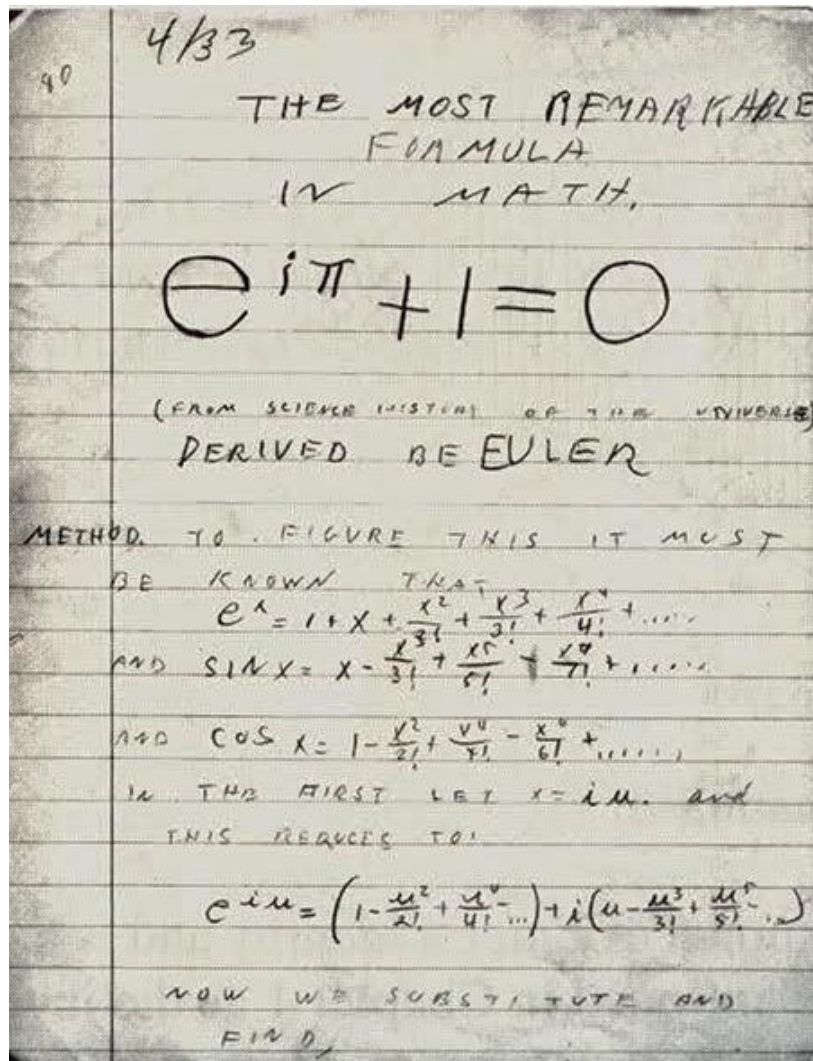 4/33
90
THE MOST REMARKABLE
FORMULA
IN MATH.
e^{iπ} + 1 = 0
(FROM SCIENCE HISTORY OF THE UNIVERSE)
DERIVED BE EULER
METHOD. TO FIGURE THIS IT MUST
BE KNOWN THAT,
e^x = 1 + x + x^2/3! + x^3/3! + x^4/4! + .....
AND SIN x = x - x^3/3! + x^5/5! - /7! + .....
AND COS x = 1 - x^2/2! + x^4/4! - x^6/6! + ......
IN THE FIRST LET x = iu. and
THIS REDUCES TO!
e^{iu} = (1 - u^2/2! + u^4/4! - ...) + i(u - u^3/3! + u^5/5! - ...)
NOW WE SUBSTITUTE AND
FIND,